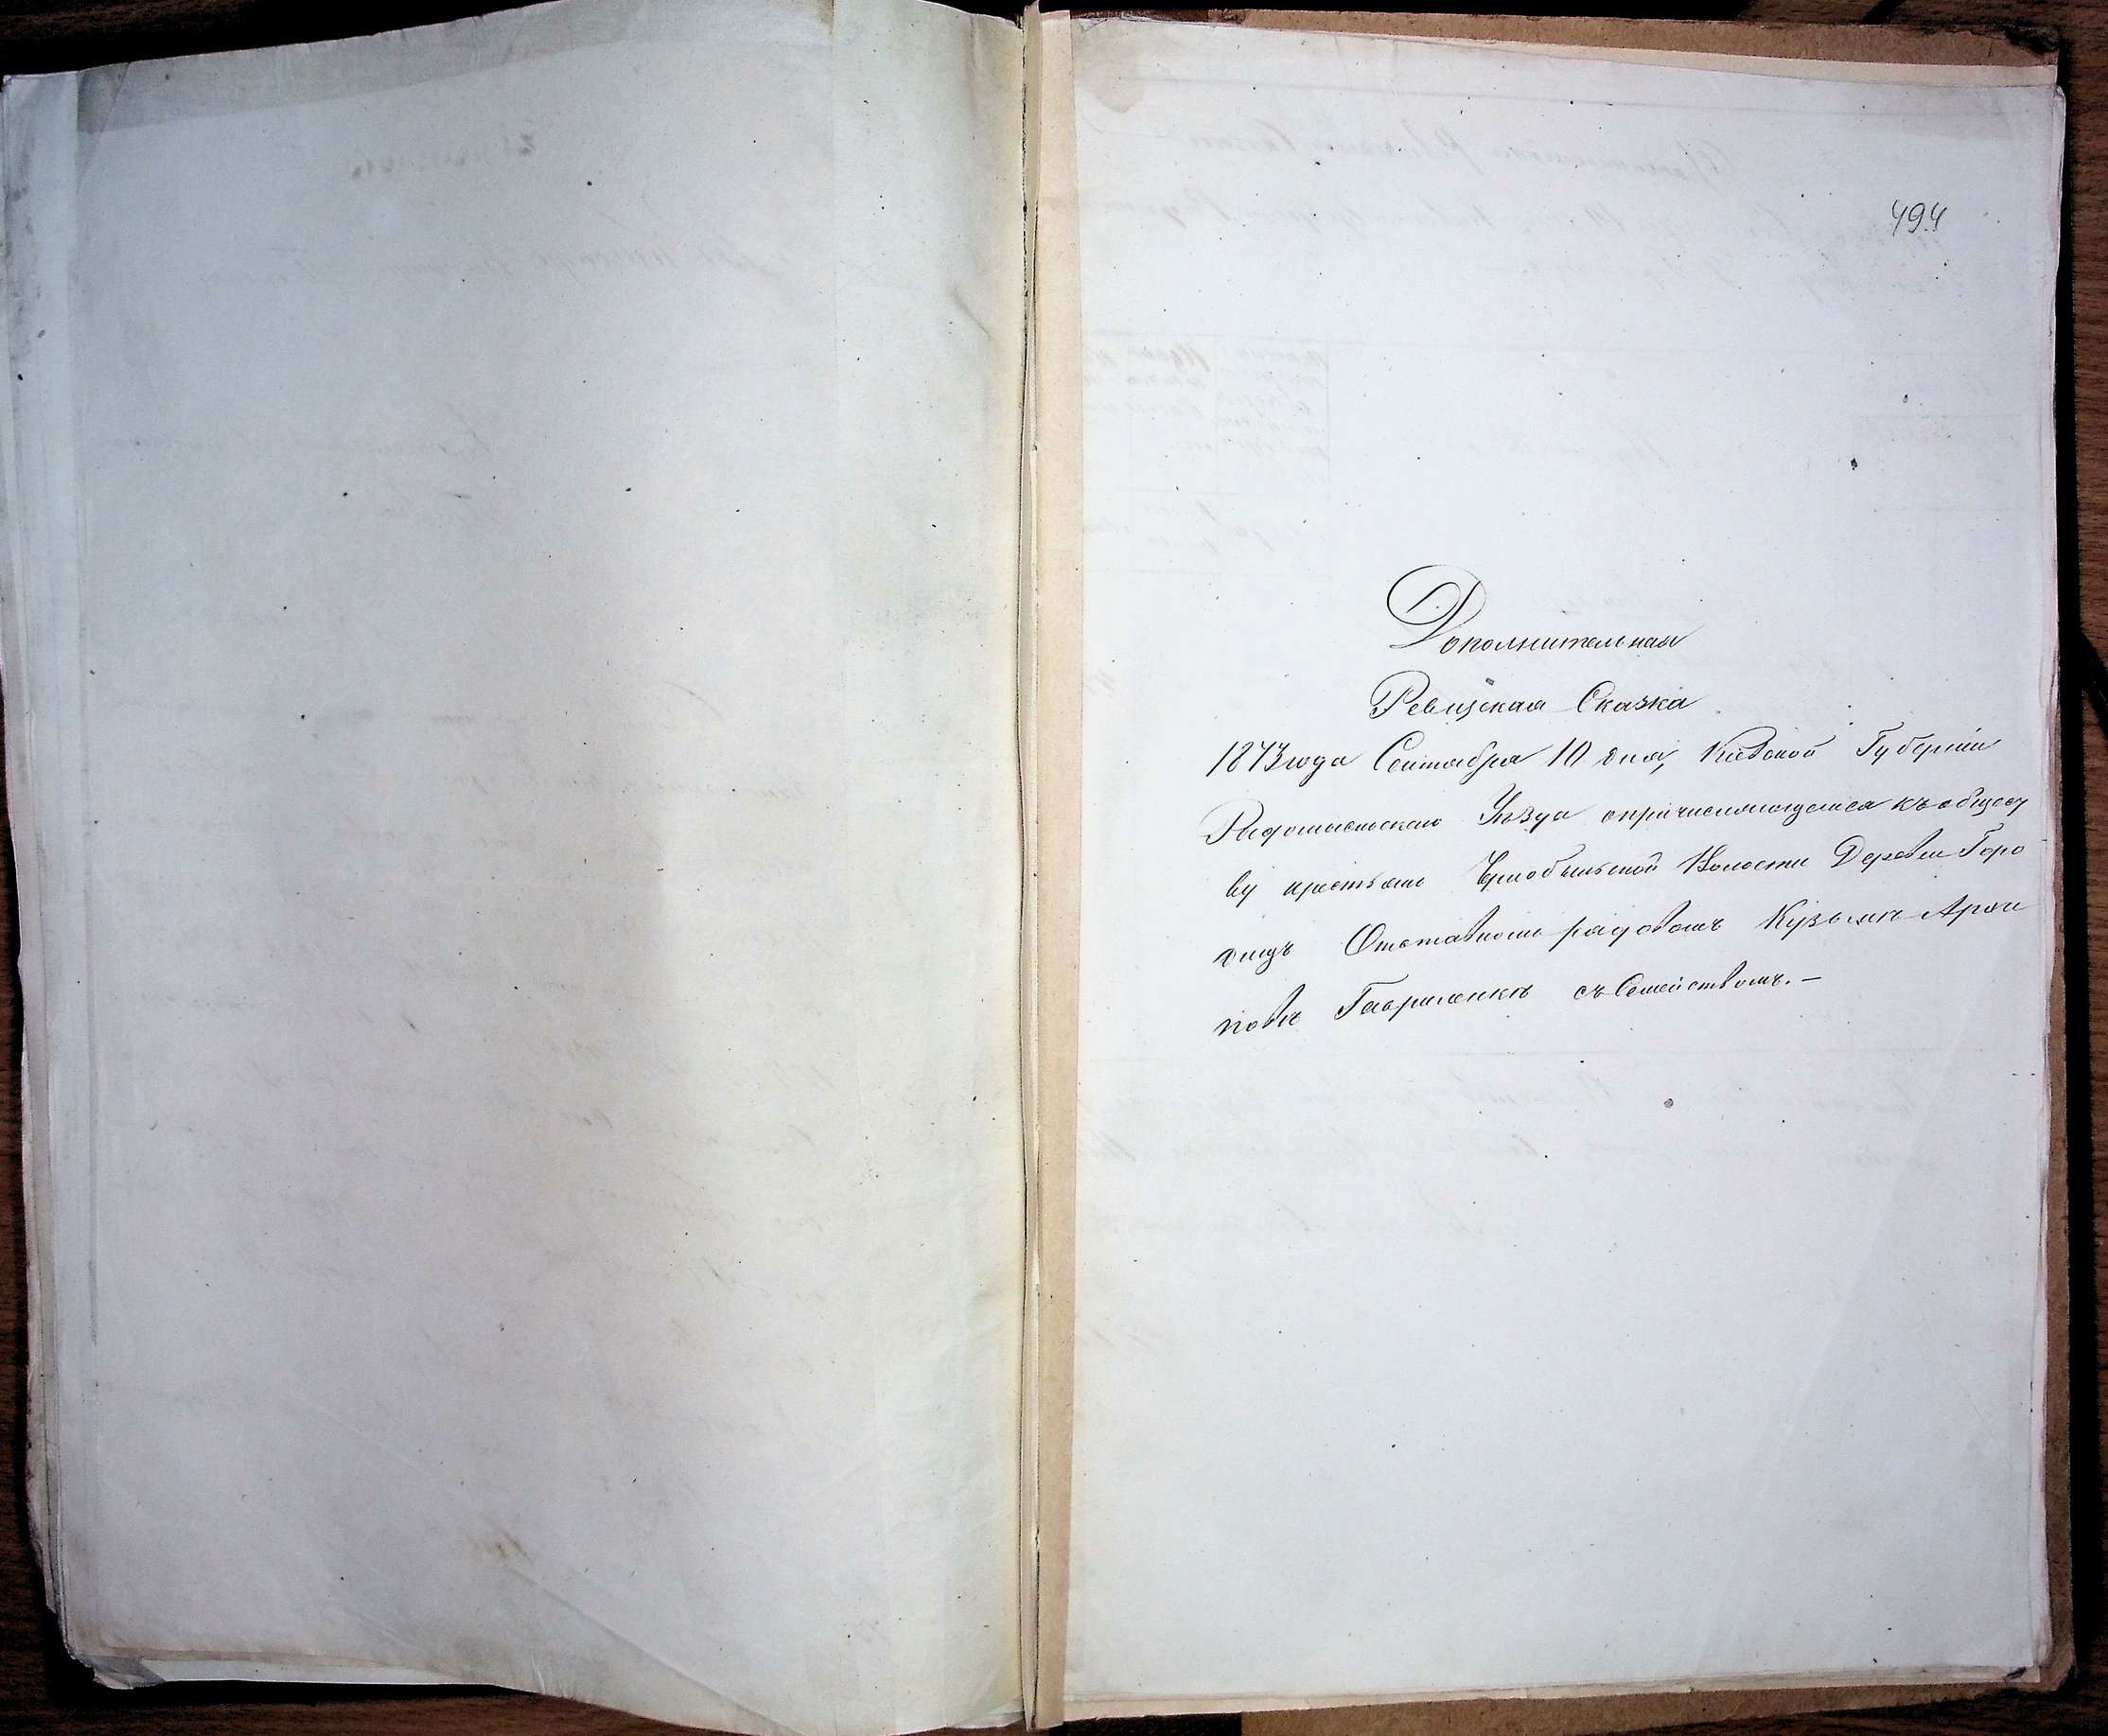 494
Дополнительная
Ревизская Сказка
1873 года Сентября 10 дня, Киевской Губернiи
Радомысльскаго Уѣзда о причисляющемся къ общест
ву крестьянъ Чернобыльской Волости Деревни Горо
дищъ Отставномъ рядовомъ Кузьмѣ Архи
повѣ Гавриленкѣ съ Семействомъ. —